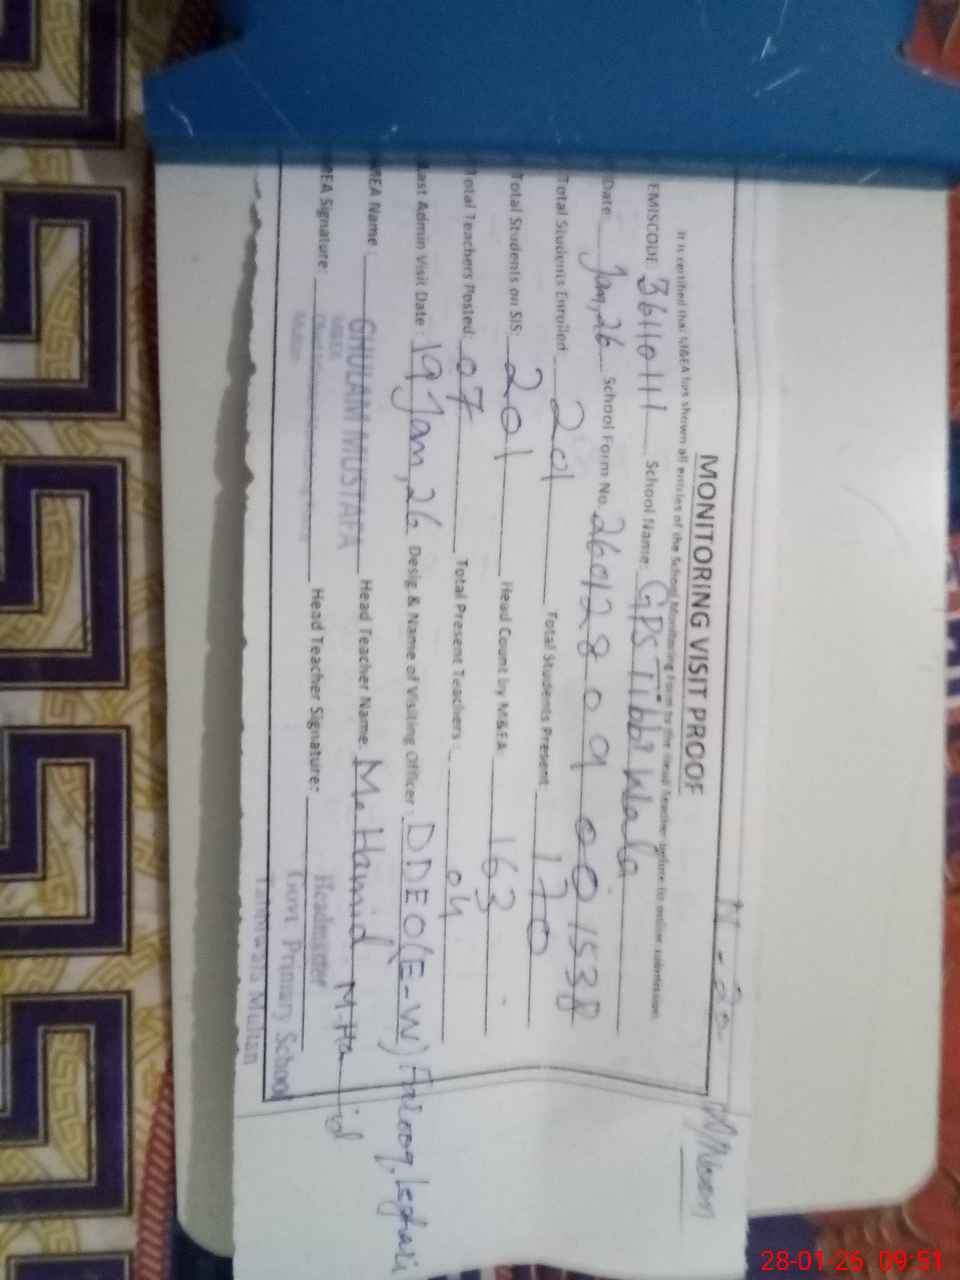 MONITORING VISIT PROOF
It is certified that M&EA has shown all entries of the School Monitoring Form to the Head Teacher before its online submission
EMISCODE: 36110111 School Name: GPS Tibbi Wala
Date: Jan, 26 School Form No. 26012809001538
Total Students Enrolled 201 Total Students Present 170
Total Students on SIS: 201 Head Count by M&EA 163
Total Teachers Posted: 07 Total Present Teachers: 04
Last Admin Visit Date: 19 Jan, 26 Desig & Name of Visiting Officer: DDEO(E-W) Farooq
MEA Name: GHULAM MUSTAFA Head Teacher Name: M. Hamid
MEA Signature: Head Teacher Signature: M. Hamid
Headmaster
Govt. Primary School
Multan
28-01-26 09:51